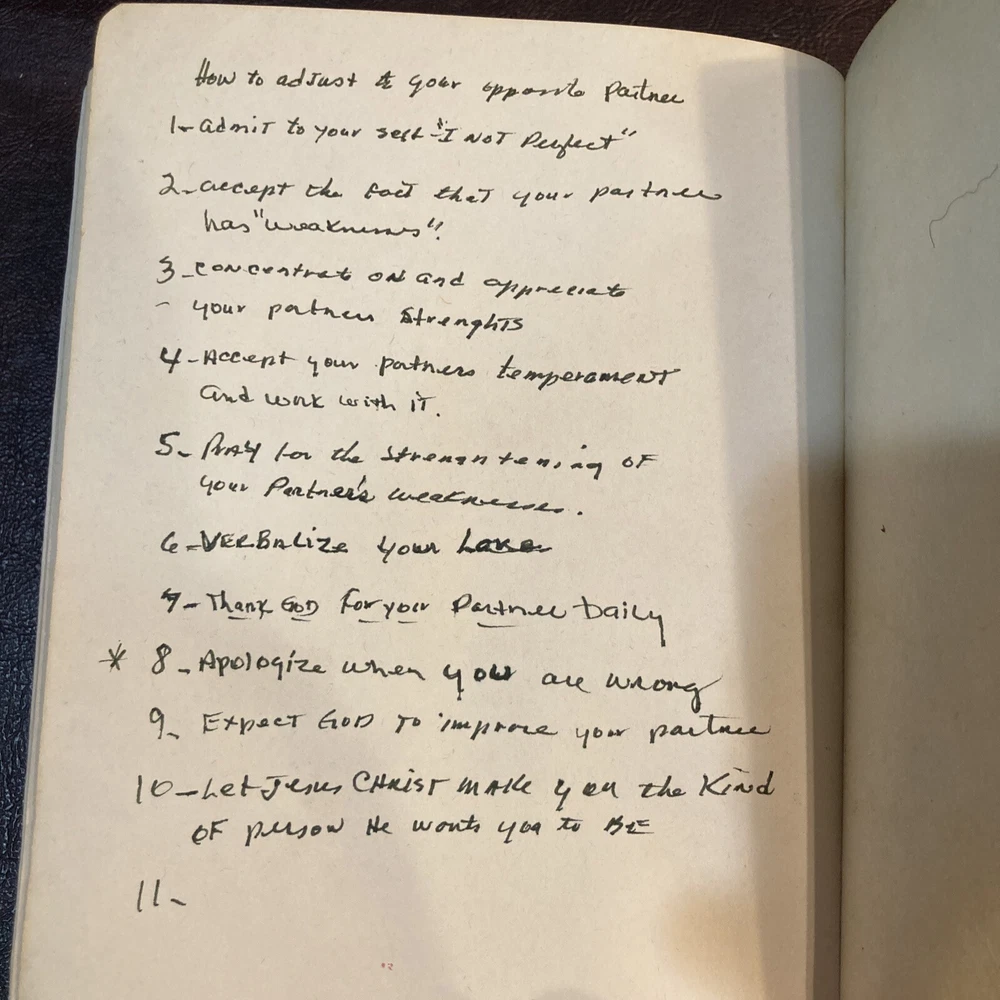 How to adjust to your opposite Partner
1- admit to your self "I NOT Perfect"
2- accept the fact that your partner
has "weaknesses".
3- concentrat on and appreciate
- your partners Strenghts
4- Accept your partners temperament
and work with it.
5- Pray for the strenghtening of
your Partner's weaknesses.
6- VERBALize your Love
7- Thank GOD for your Partner Daily
* 8- Apologize when you are wrong
9- Expect GOD to improve your partner
10- Let Jesus CHRIST make you the Kind
of person He wants you to BE
11-